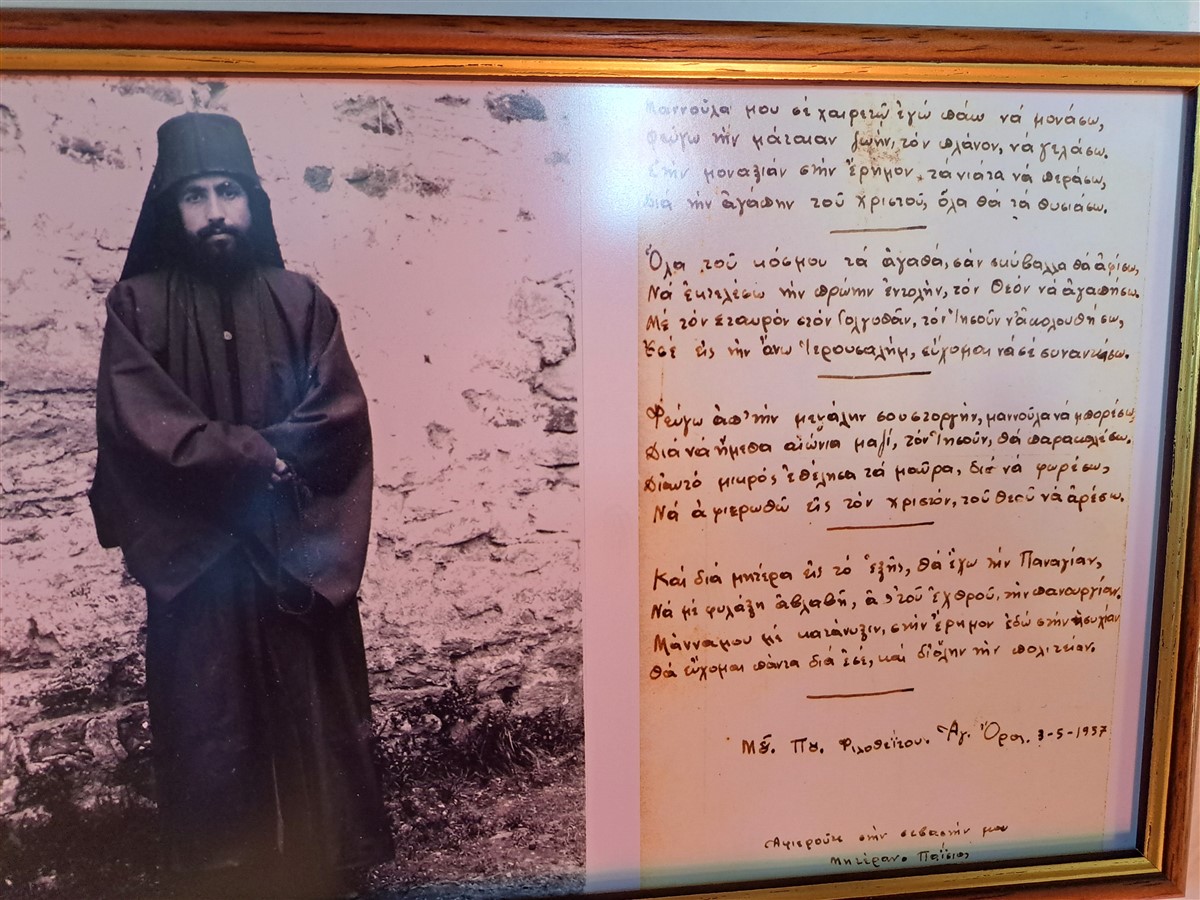 Μαννούλα μου σέ χαιρετῶ ἐγώ πάω νά μονάσω,
Φεύγω τήν μάταιαν ζωήν, τόν πλάνον, νά γελάσω.
Στήν μοναξιάν στήν ἔρημον, τά νιάτα νά περάσω,
Διά τήν ἀγάπην τοῦ Χριστοῦ, ὅλα θά τά θυσιάσω.
Ὅλα τοῦ κόσμου τά ἀγαθά, σάν σκύβαλλα θά ἀφίσω,
Νά ἐκτελέσω τήν πρώτην ἐντολήν, τόν Θεόν νά ἀγαπήσω.
Μέ τόν Σταυρόν στόν Γολγοθᾶν, τόν Ἰησοῦν ν' ἀκολουθήσω,
Ἐσέ εἰς τήν ἄνω Ἱερουσαλήμ, εὔχομαι νά σέ συναντήσω.
Φεύγω ἀπ' τήν μεγάλην σου στοργήν, μαννούλα νά μπορέσω,
Διά νά ἤμεθα αἰώνια μαζί, τόν Ἰησοῦν, θά παρακαλέσω.
Δι αυτό μικρός ἐθέλησα τά μαῦρα, διά νά φορέσω,
Νά ἀφιερωθῶ εἰς τόν Χριστόν, τοῦ Θεοῦ νά ἀρέσω.
Καί διά μητέρα εἰς τό ἑξῆς, θά ἔχω τήν Παναγίαν,
Νά μέ φυλάξη ἀβλαβῆ, ἀπ' τοῦ ἐχθροῦ, τήν πανουργίαν.
Μάννα μου μέ κατάνυξιν, στήν ἔρημον ἐδώ στήν ἡσυχίαν
Θά εὔχομαι πάντα διά ἐσέ, καί δι' ὅλην τήν πολιτείαν.
Φιλοθεΐτου. Ἁγ. Ὄρος. 3-5-1957
Ἀφιεροῦτε στήν σεβαστήν μου
Μητέραν. Παΐσιος